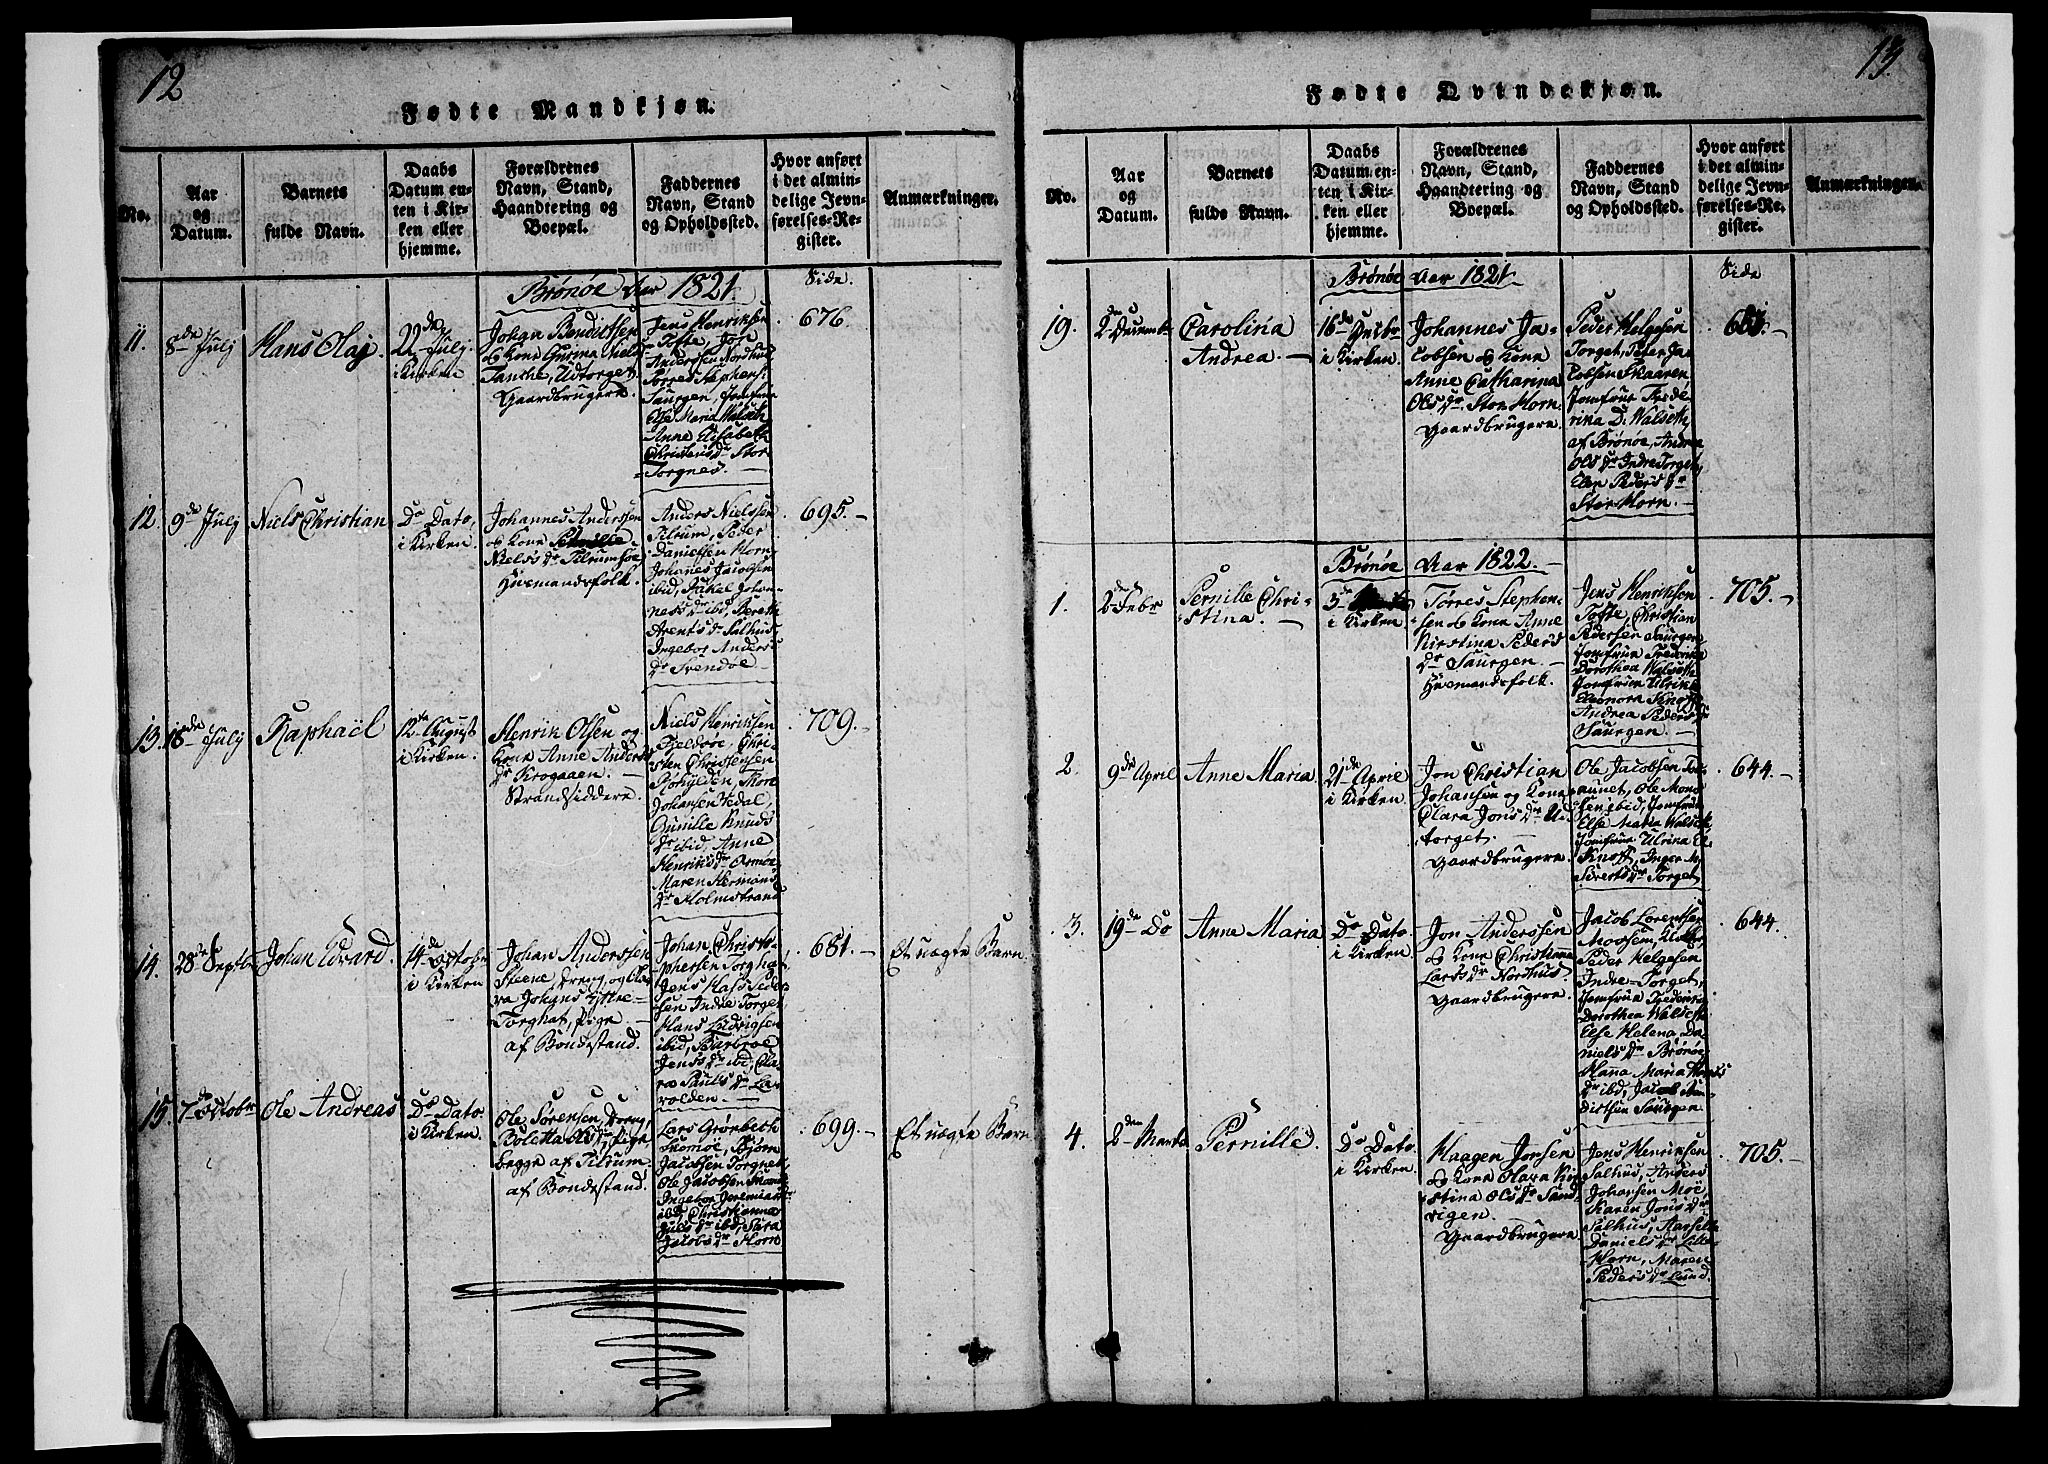 12
Fødte Mandkjøn.
No.
Aar
og
Datum.
Barnets
fulde Navn.
Daabs
Datum en-
ten i Kir-
ken eller
hjemme.
Forældrenes
Navn, Stand,
Haandtering og
Boepæl.
Faddernes
Navn, Stand
og Opholdssted.
Hvor anført
i det almin-
delige Jevn-
førelses-Re-
gister.
Anmærkninger.
Brønøe Aar 1821.
Side.
11.
8de Julj
Hans Olaj.
22de Julj.
i Kirken
Johan Bendixtsen
og Kone Gurina Niels
Tanche, Udtorget
Gaardbrugere.
Jens Henriksen
Tofte, Jon
Anderssen Nordhus
Torres Stephens.
Saurgen, Jomfrue
Else Maria Walseth
Anne Elisabeth
Christensdr Stor
Torgnes.
676
12.
9de Julj
Niels Christian
Do Dato,
i Kirken.
Johannes Anderssen
og Kone
Nielsdr Tilrumsøe
Huusmandsfolk.
Anders Nielssen
Tilrum, Peder
Danielsen Horn
Johanes Jacobsen
ibid, Rakel Johan-
nesdr ibid, Bereth
Arentsdr Salhus
Ingebor Anders
dr Svendøe
695.
13.
18de Julj
Raphaël
12te August
i Kirken.
Henrik Olsen og
Kone Anne Anders
dr Krogaaen.
Strandsiddere.
Niels Henriksen
Tjeldøe, Chri-
sten Christensen
Rohylden, Thore
Johansen Vedal,
Gunille Knuds
dr ibid, Anne
Henriksdr Ormøe
Maren Hermans
dr Holmstrand
709.
14.
28de Septbr
Johan Edvard.
14de Octobr
i Kirken
Johan Anderssen
Steene, Dreng, og Cla-
ra Johans Yttre-
Torghat, Pige
af Bondestand.
Johan Christo-
phersen Torghat
Jens Hass Peder
sen Indre Torget
Hans Ludvigsen
ibid, Barbroe
Jensdr ibid, Cla-
ra Paulsdr La-
volden.
681.
Et uægte Barn.
15.
7de Octobr
Ole Andreas
Do Dato
i Kirken.
Ole Sørensen Dreng,
Boletta Olsdr, Pige
begge af Tilrum.
af Bondestand.
Lars Grønbech
Thomøe, Bjørn
Jacobsen Torgnet,
Ole Jacobsen
Ingebor Jeremias dr
ibid, Christianna
Julsdr ibd, Sara
Jacobsdr Horn
699.
Et uægte Barn
13.
Fødte Qvindekjøn.
No.
Aar
og
Datum.
Barnets
fulde Navn.
Daabs
Datum en-
ten i Kir-
ken eller
hjemme.
Forældrenes
Navn, Stand,
Haandtering og
Boepæl.
Faddernes
Navn, Stand
og Opholdssted.
Hvor anført
i det almin-
delige Jevn-
førelses-Re-
gister.
Anmærkninger.
Brønøe Aar 1821.
Side
19.
2den Decembr
Carolina
Andrea.
16de Decbr
i Kirken.
Johannes Ja-
cobsen og Kone
Anne Catharina
Olsdr. Stor Horn.
Gaardbrugere.
Peder Helgesen
Torget, Peter Ja-
cobsen Skaaren,
Jomfrue Frede-
rina D. Walseth
af Brønøe, Andrea
Olsdr Indre Torget,
Elen Pedersdr
Stor Horn.
Brønøe Aar 1822.
1.
2den Febr
Pernille Chri-
stina.
3de
i Kirken.
Torres Stephen-
sen og Kone Anne
Kirstina Peders
dr Saurgen.
Huusmandsfolk.
Jens Henriksen
Tofte, Christian
Pedersen Saurgen
Jomfrue Frederica
Dorothea Walseth
Jomfrue Ulrikka
Eleonora Knoff
Andrea Pedersdr
Saurgen.
705.
2.
9de April
Anne Maria
21de April
i Kirken.
Jon Christian
Johansen og Kone
Clara Jonsdr Ud-
torget.
Gaardbrugere.
Ole Jacobsen Tor-
aunet, Ole Mons
sen ibid, Jomfrue
Else Maria Walseth,
Jomfrue Ulrina E.
Knoff, Inger M.
Sivertsdr Torget
644.
3.
19de Do
Anne Maria
Do Dato
i Kirken.
Jon Anderssen
og Kone Christianne
Larsdr Nordhus
Gaardbrugere.
Jacob Lorentsen
Moosem, Klokker
Peder Helgesen
Indre-Torget,
Jomfrue Frederica
Dorothea Walseth
Else Helena Da-
nielsdr Brønøe
Hana Maria
dr ibid, Jacob Ben-
dictsen Saurgen
644.
4.
2den Marts
Pernille
Do Dato.
i Kirken.
Haagen Jonsen
og Kone Olara Kir
stina Olsdr Sand
vigen.
Gaardbrugere.
Jens Henriksen
Salhus, Anders
Johansen Moe,
Karen Jonsdr
Salhus, Marselle
Danielsdr Lille
Horn, Maren
Pedersdr Lund.
705.